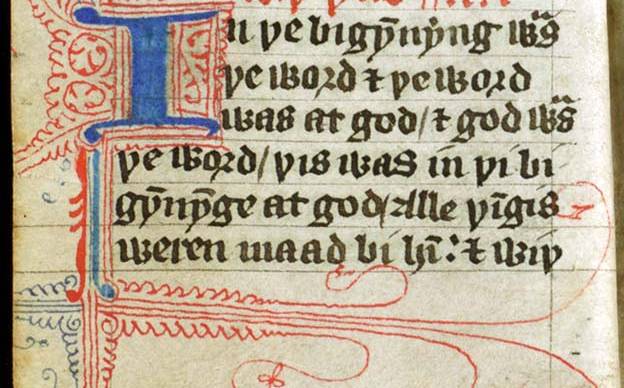 In þe bigȳnyng wᵃs
þe word ⁊ þe word
was at god/ ⁊ god wᵃs
þe word/ þis was in þi bi
gȳnȳge at god/ Alle þīgis
weren maad bi hī: ⁊ wiþ